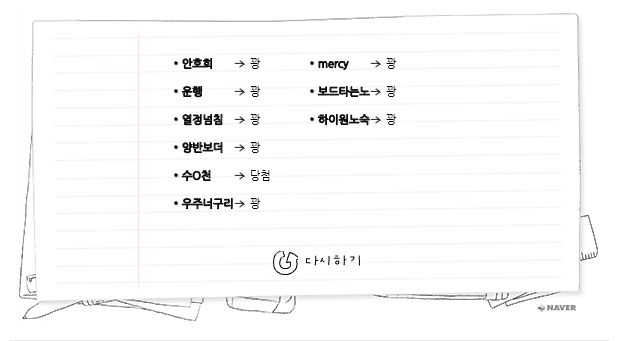 • 안호희 → 꽝
• 운행 → 꽝
• 열정넘침 → 꽝
• 양반보더 → 꽝
• 수O천 → 당첨
• 우주너구리 → 꽝
• mercy → 꽝
• 보드타는노 → 꽝
• 하이원노숙 → 꽝
다시하기
NAVER